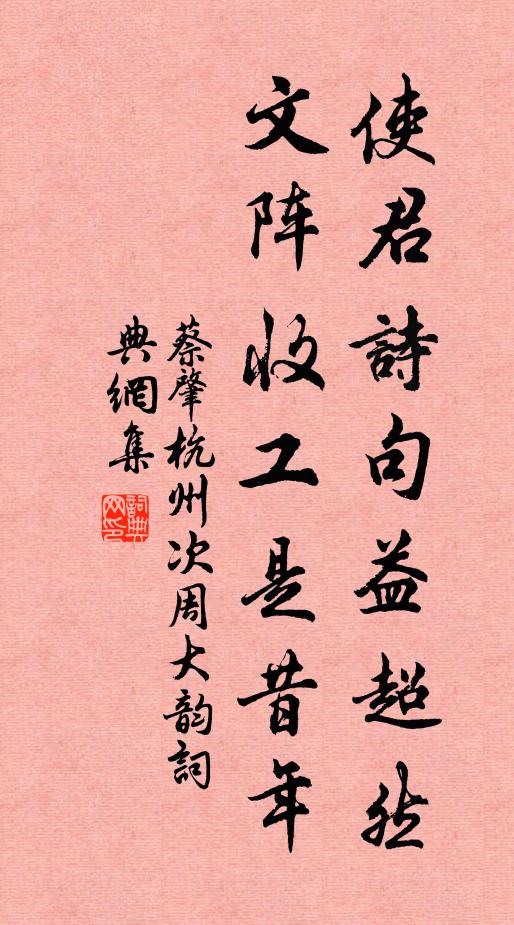 使君詩句益超然
文阵收工是昔年
蔡肇杭州次周大韵詞
典網集
詞典网印